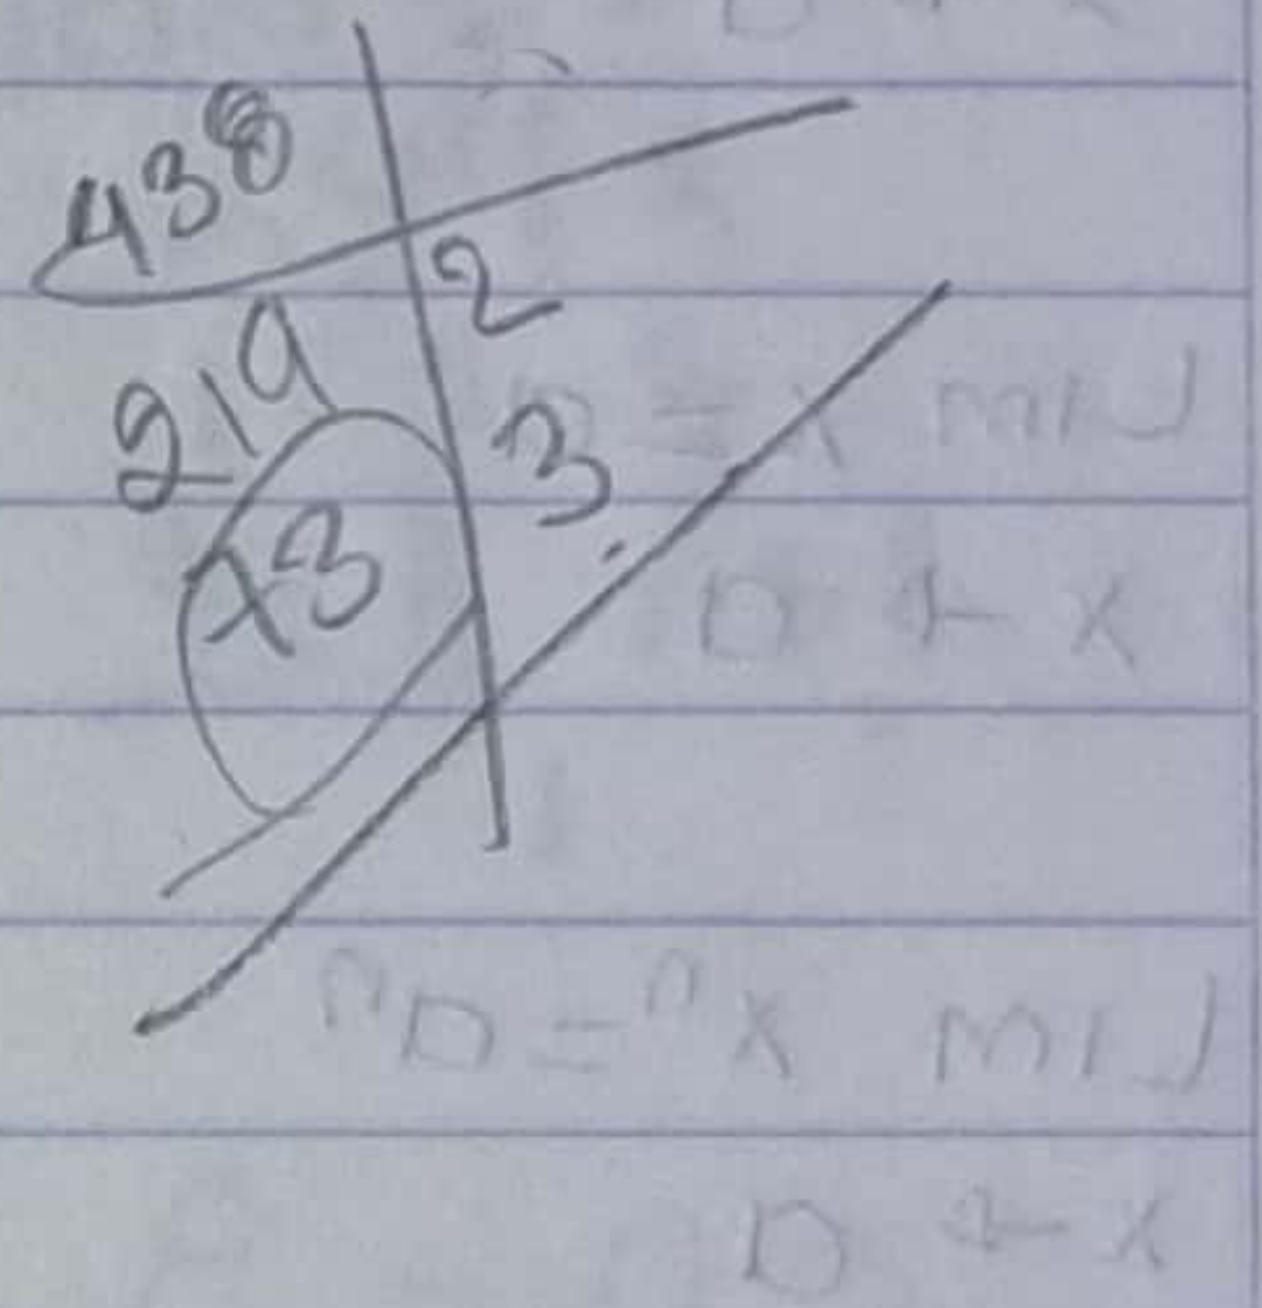 438 2
219 3
73